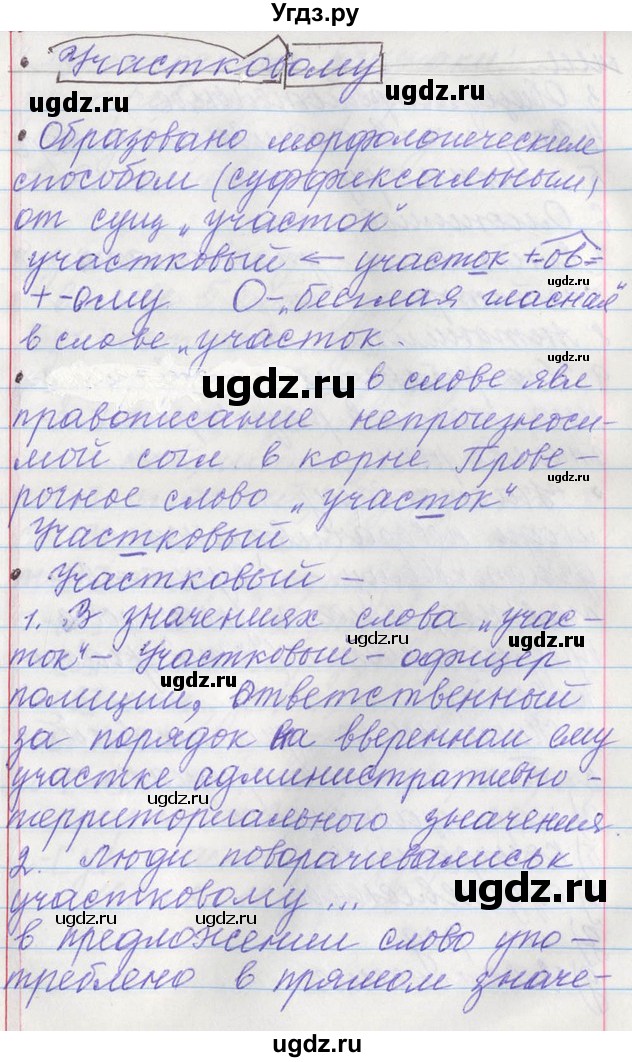 Угдз.ру
• Участковому
ugdz.ru ugdz.ru
• Образовано морфологическим
способом (суффиксальным)
от сущ „участок“
ugdz.ru
участковый ← участок + -ов-
ugdz.ru
+ -ому О - „беглая гласная“
в слове „участок.
ugdz.ru
• в слове явл
правописание непроизноси-
мой согл в корне Прове-
рочное слово „участок“
Участковый
ugdz.ru
• Участковый –
1. З значениях слова „учас-
ugdz.ru ugdz.ru
ток“ – Участковый – офицер
ugdz.ru
полиции, ответственный
за порядок на вверенном ему
участке административно -
ugdz.ru
территориального значения
2. Люди поворачивались к
ugdz.ru
участковому ...
ugdz.ru
в предложении слово упо -
ugdz.ru
треблено в прямом значе-
ugdz.ru
Угдз.ру